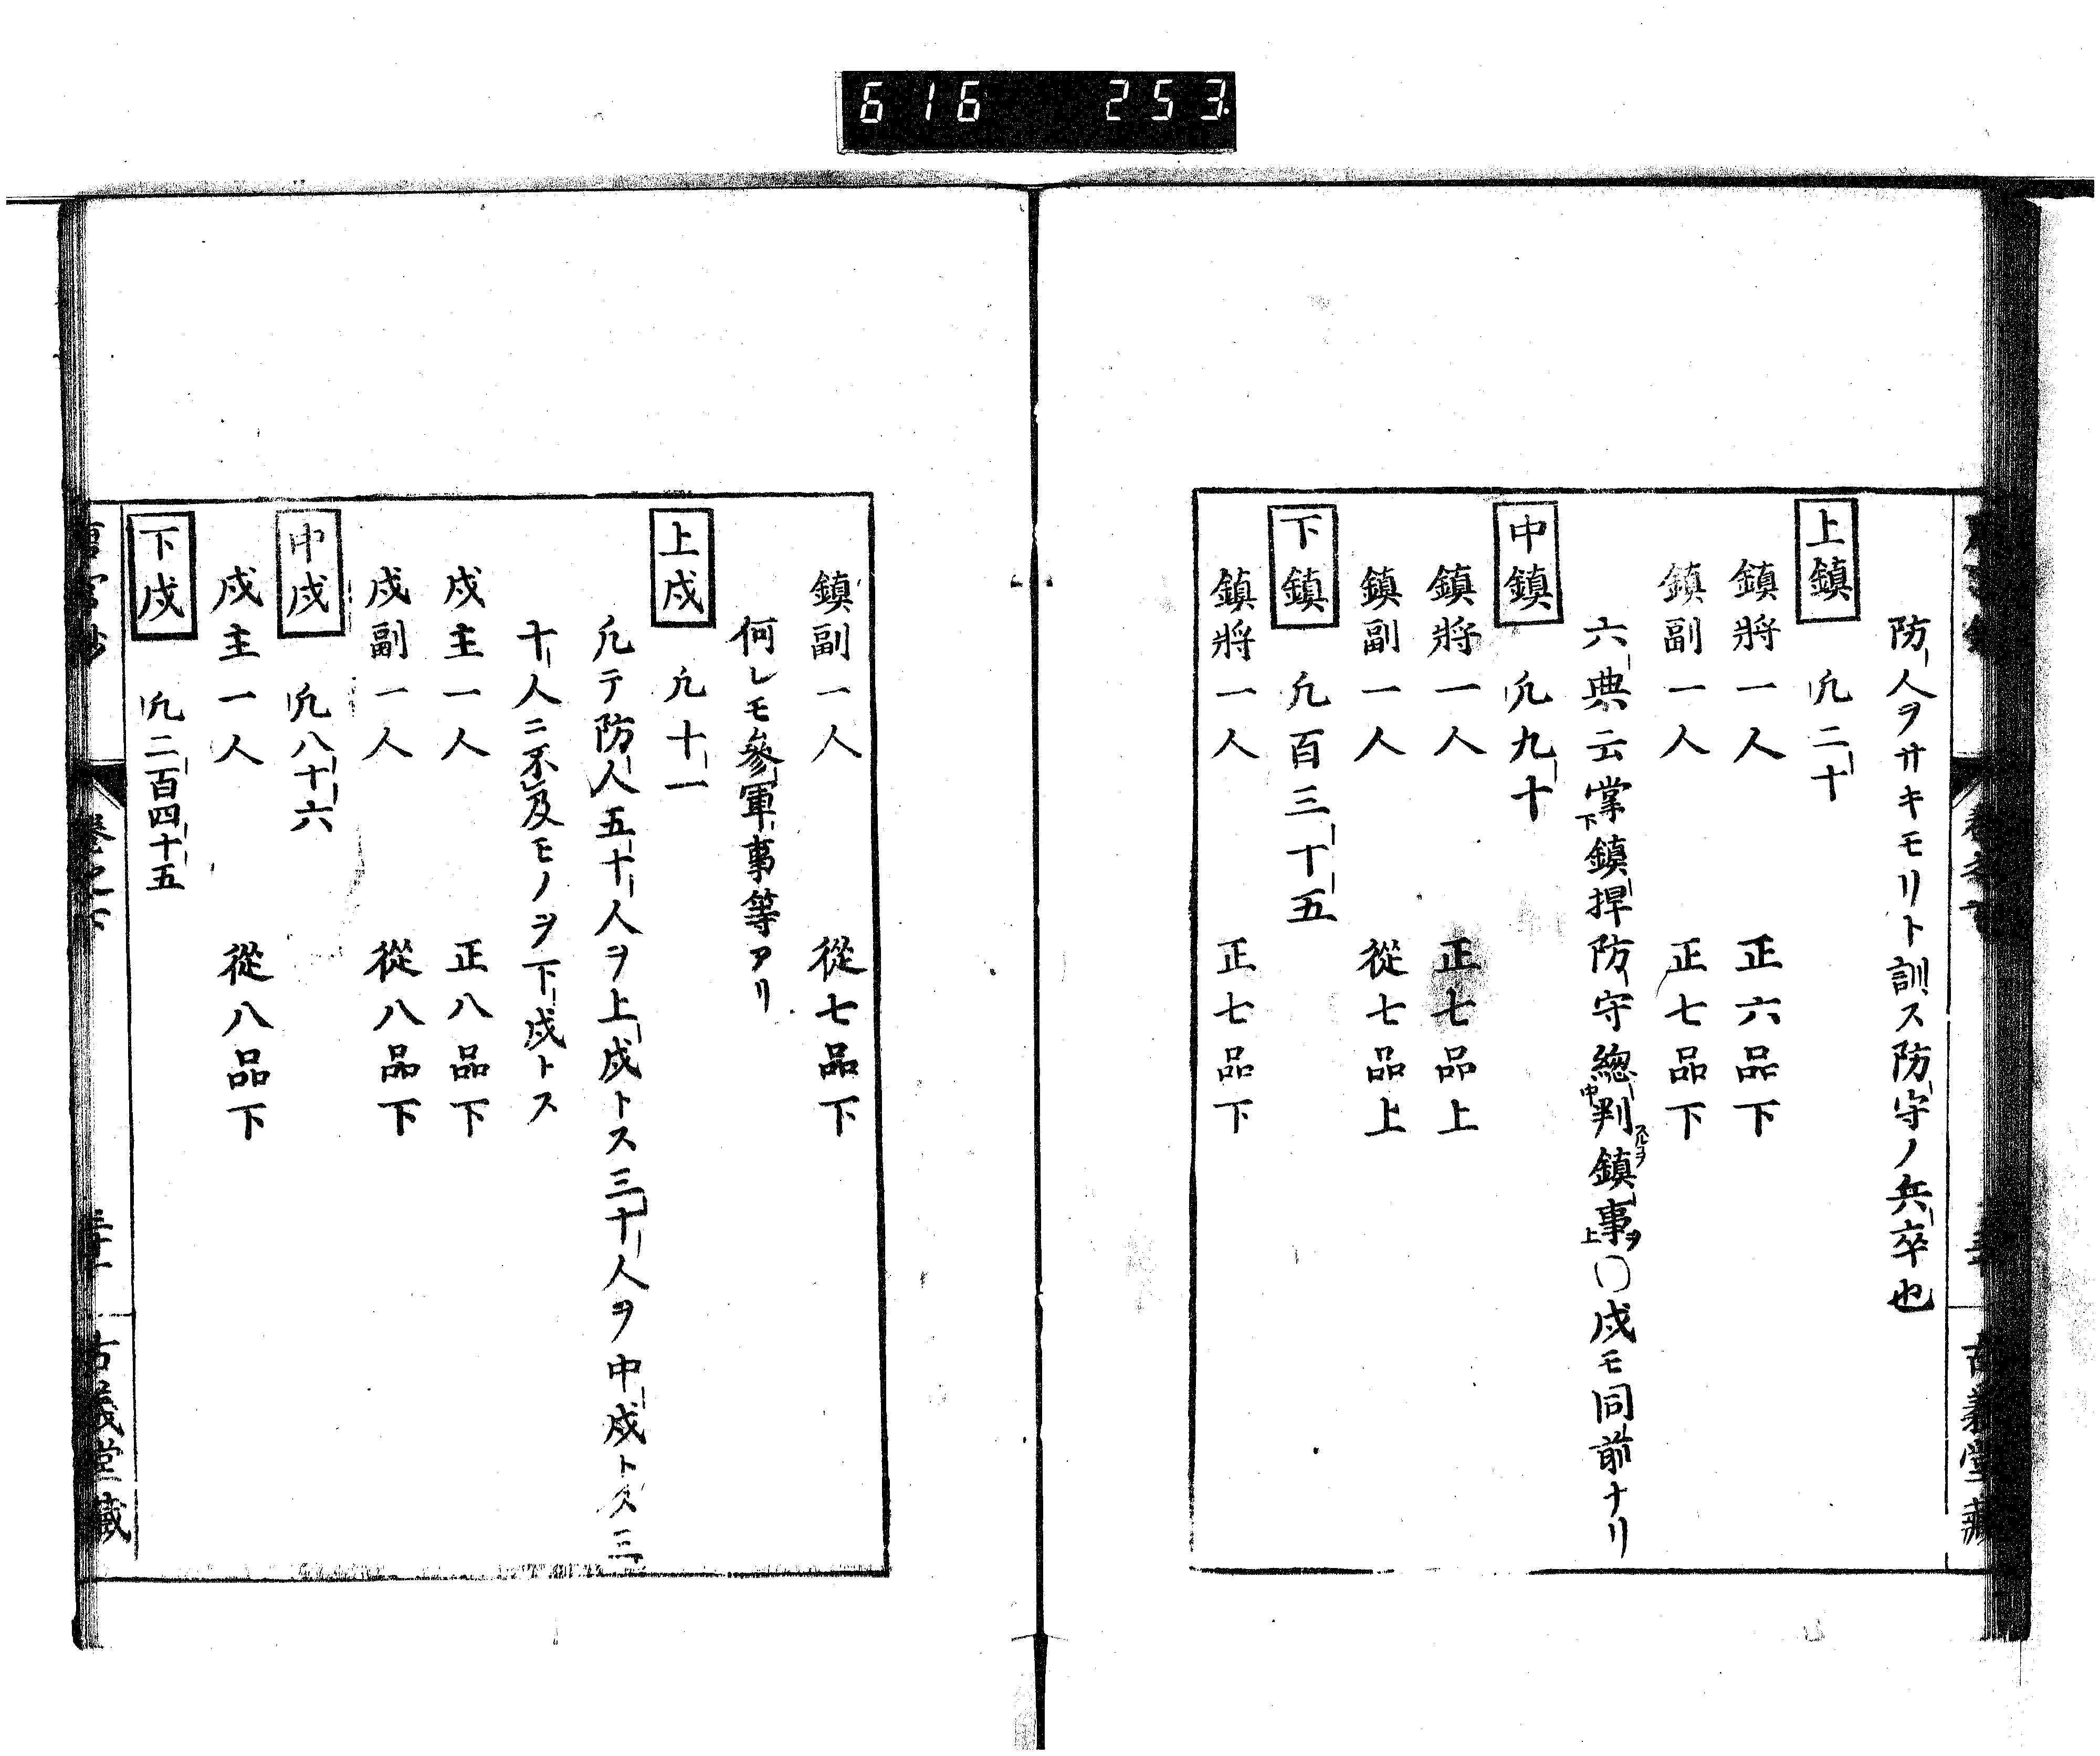 616 253
防人ヲサキモリト訓ス防守ノ兵卒也
上鎮 凡二十
鎮將一人 正六品下
鎮副一人 正七品下
六典云掌下鎮捍防守總中判スルヿヲ鎮事ヲ上〇戍モ同前ナリ
中鎮 凡九十
鎮將一人 正七品上
鎮副一人 從七品上
下鎮 凡百三十五
鎮將一人 正七品下
鎮副一人 從七品下
何レモ參軍事等アリ
上戍 凡十一
凡テ防人五十人ヲ上戍トス三十人ヲ中戍トス三
十人ニ不及モノヲ下戍トス
戍主一人 正八品下
戍副一人 從八品下
中戍 凡八十六
戍主一人 從八品下
下戍 凡二百四十五
卷之下
古義堂藏